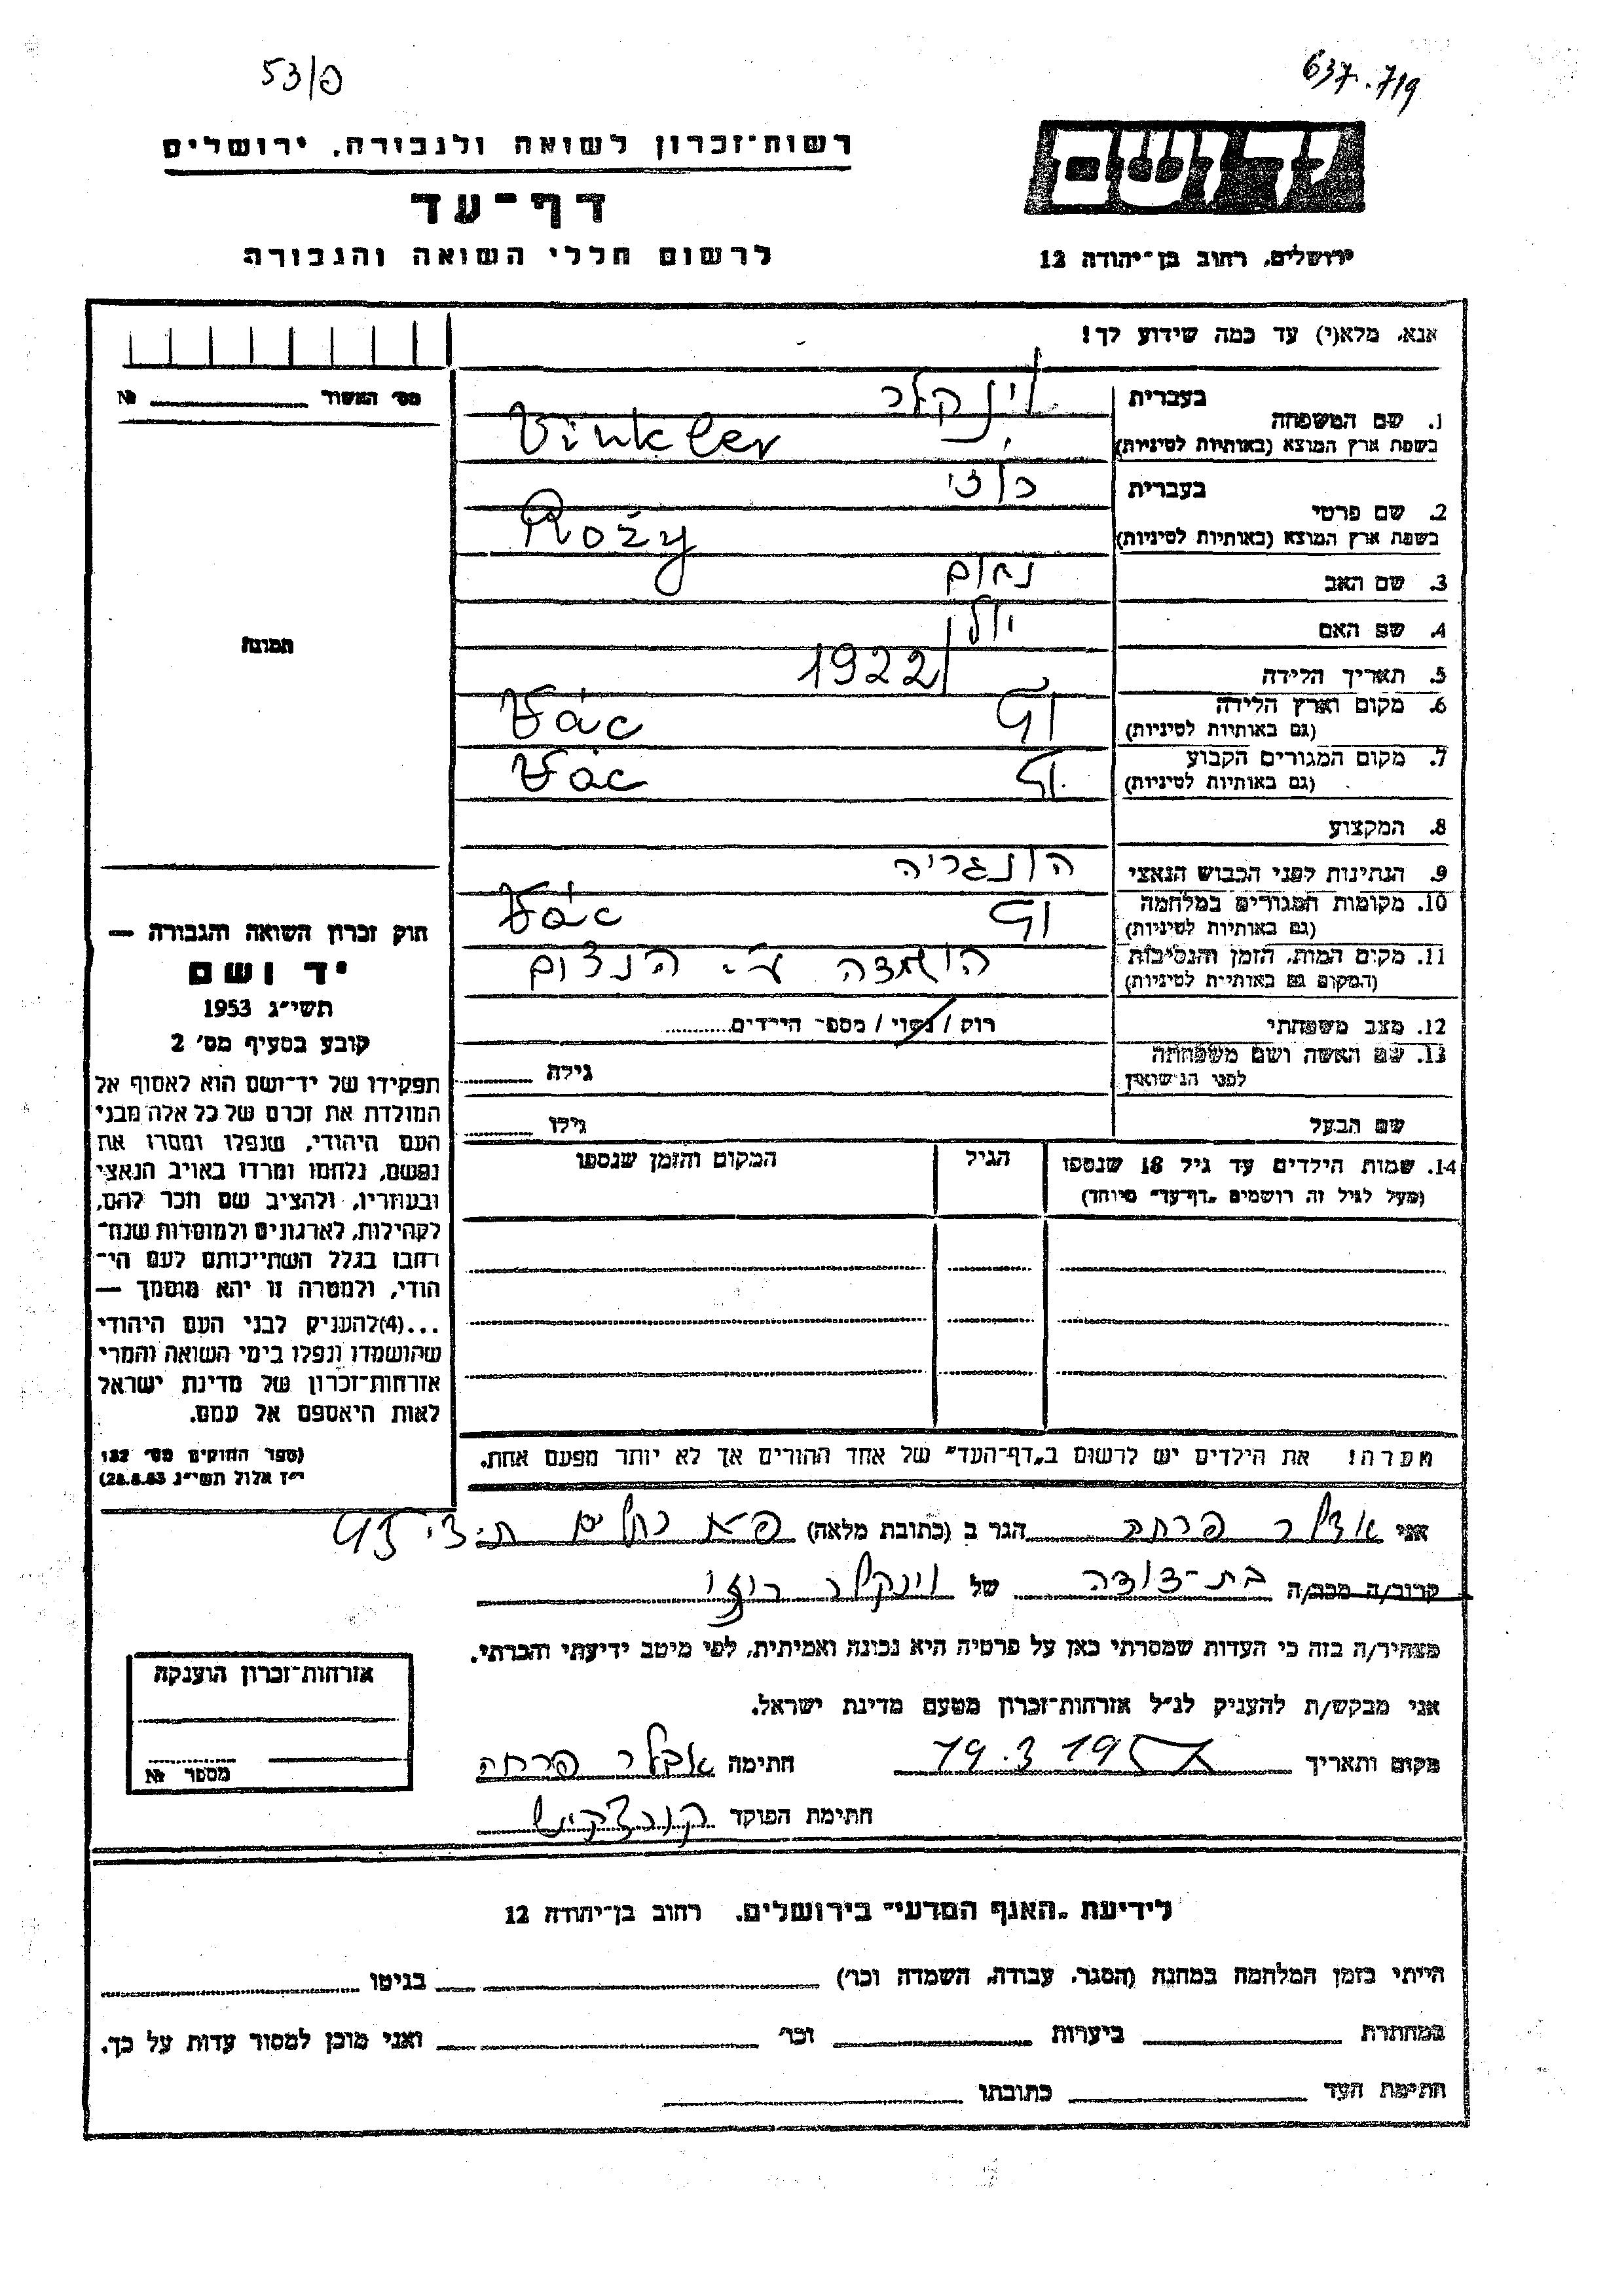 53/פ
637.719
רשות-זכרון לשואה ולגבורה, ירושלים
דף-עד
לרשום חללי השואה והגבורה
יד ושם
ירושלים, רחוב בן-יהודה 12
אנא, מלא(י) עד כמה שידוע לך!
מס' האשור № 
1. שם המשפחה
בעברית וינקלר
בשפת ארץ המוצא (באותיות לטיניות) Vinkler
2. שם פרטי
בעברית רוזי
בשפת ארץ המוצא (באותיות לטיניות) Rožy
3. שם האב נחום
4. שם האם
5. תאריך הלידה 1922
6. מקום וארץ הלידה
(גם באותיות לטיניות) Vác
7. מקום המגורים הקבוע
(גם באותיות לטיניות) Vác
8. המקצוע
9. הנתינות לפני הכבוש הנאצי הונגריה
10. מקומות המגורים במלחמה
(גם באותיות לטיניות) Vác
11. מקום המות, הזמן והנסיבות
(המקום גם באותיות לטיניות)
12. מצב משפחתי רווק / נשוי / מספר הילדים
13. שם האשה ושם משפחתה
לפני הנישואין גילה
שם הבעל גילו
14. שמות הילדים עד גיל 18 שנספו הגיל המקום והזמן שנספו
(מעל לגיל זה רושמים "דף-עד" מיוחד)
הערה! את הילדים יש לרשום ב"דף-העד" של אחד ההורים אך לא יותר מפעם אחת.
תמונה
חוק זכרון השואה והגבורה —
יד ושם
תשי"ג 1953
קובע בסעיף מס' 2
תפקידו של יד-ושם הוא לאסוף אל
המולדת את זכרם של כל אלה מבני
העם היהודי, שנפלו ומסרו את
נפשם, נלחמו ומרדו באויב הנאצי
ובעוזריו, ולהציב שם וזכר להם,
לקהילות, לארגונים ולמוסדות שנח-
רבו בגלל השתייכותם לעם הי-
הודי, ולמטרה זו יהא מוסמך —
...(4) להעניק לבני העם היהודי
שהושמדו ונפלו בימי השואה והמרי
אזרחות-זכרון של מדינת ישראל
לאות היאספם אל עמם.
(ספר החוקים מס' 132
י"ז אלול תשי"ג 28.8.53)
אני אדלר פרחה הגר ב (כתובת מלאה)
קרוב/ה מכר/ה בת-דודה של וינקלר רוזי
מצהיר/ה בזה כי העדות שמסרתי כאן על פרטיה היא נכונה ואמיתית, לפי מיטב ידיעתי והכרתי.
אני מבקש/ת להעניק לנ"ל אזרחות-זכרון מטעם מדינת ישראל.
מקום ותאריך חתימה אדלר פרחה
חתימת הפוקד
אזרחות-זכרון הוענקה
מספר №
לידיעת "האגף המדעי" בירושלים, רחוב בן-יהודה 12
הייתי בזמן המלחמה במחנה (הסגר, עבודה, השמדה וכו') בגיטו
במחתרת ביערות וכו' ואני מוכן למסור עדות על כך.
חתימת העד כתובתו